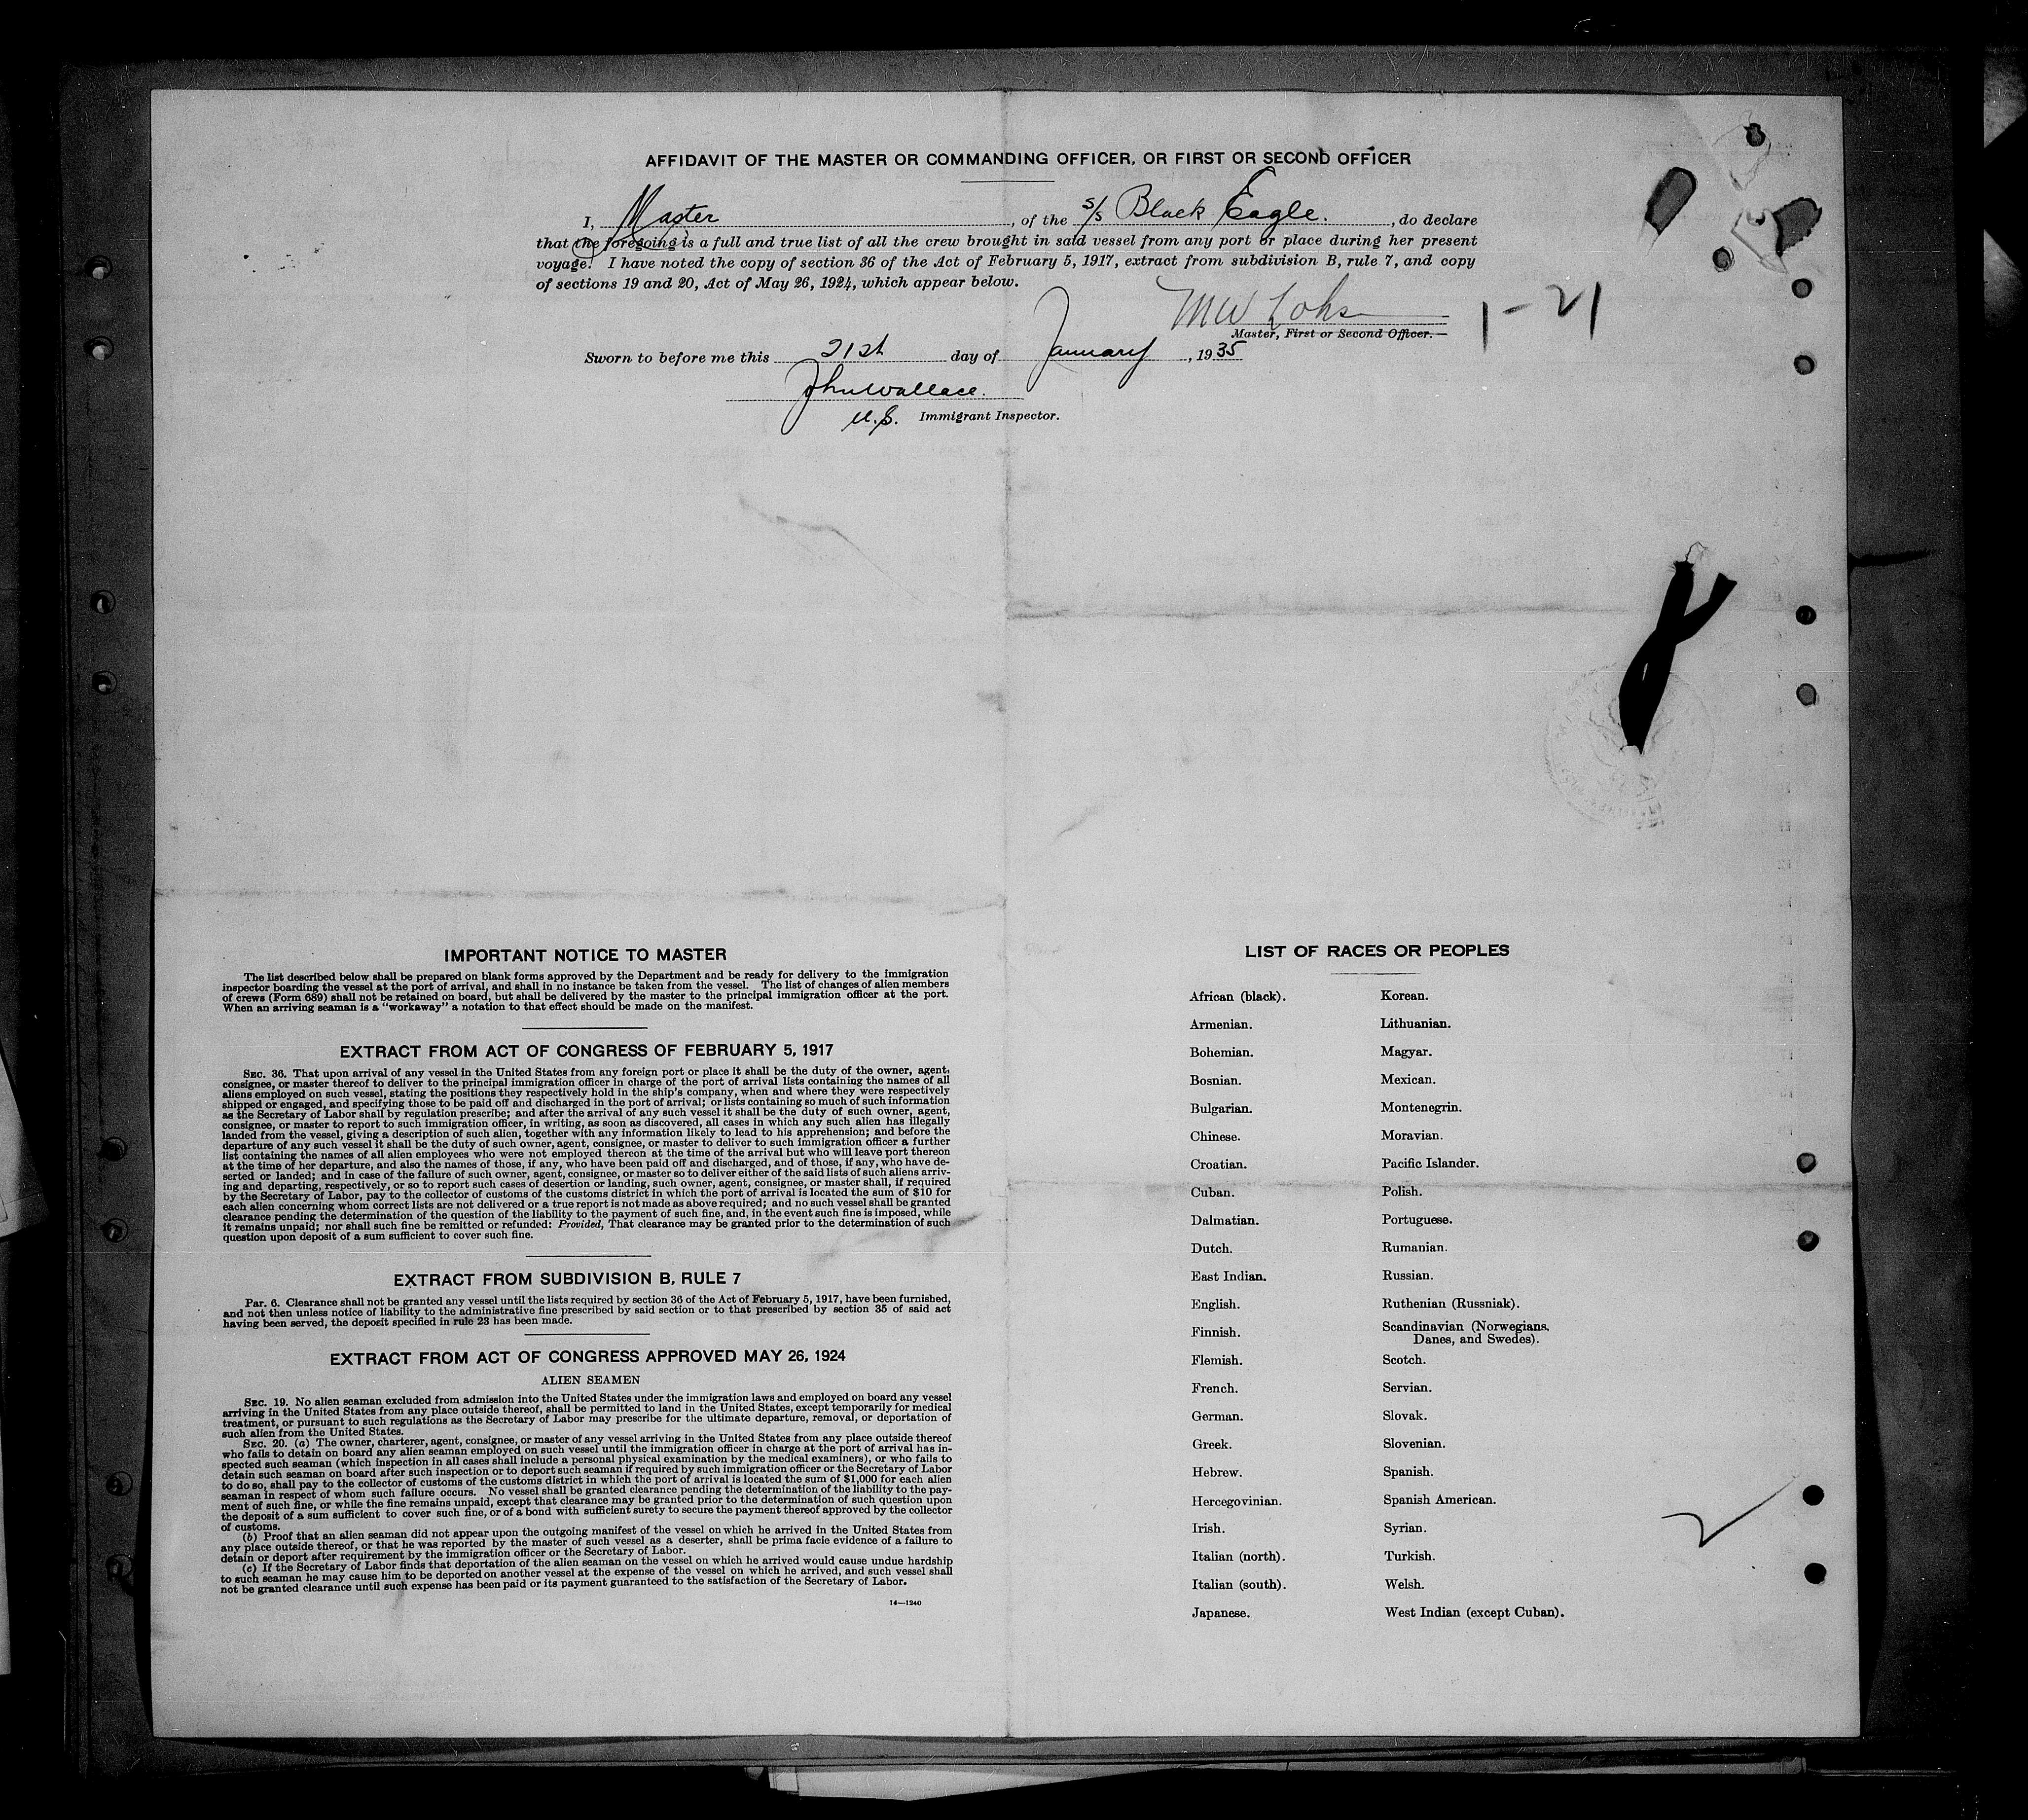 AFFIDAVIT OF THE MASTER OR COMMANDING OFFICER, OR FIRST OR SECOND OFFICER
I, Master, of the s/s Black Eagle., do declare
that the foregoing is a full and true list of all the crew brought in said vessel from any port or place during her present
voyage. I have noted the copy of section 36 of the Act of February 5, 1917, extract from subdivision B, rule 7, and copy
of sections 19 and 20, Act of May 26, 1924, which appear below.
MW Lohs
1-21
Master, First or Second Officer.
Sworn to before me this 21st day of January, 1935
John Wallace.
U.S. Immigrant Inspector.
IMPORTANT NOTICE TO MASTER
The list described below shall be prepared on blank forms approved by the Department and be ready for delivery to the immigration
inspector boarding the vessel at the port of arrival, and shall in no instance be taken from the vessel. The list of changes of alien members
of crews (Form 689) shall not be retained on board, but shall be delivered by the master to the principal immigration officer at the port.
When an arriving seaman is a "workaway" a notation to that effect should be made on the manifest.
EXTRACT FROM ACT OF CONGRESS OF FEBRUARY 5, 1917
SEC. 36. That upon arrival of any vessel in the United States from any foreign port or place it shall be the duty of the owner, agent,
consignee, or master thereof to deliver to the principal immigration officer in charge of the port of arrival lists containing the names of all
aliens employed on such vessel, stating the positions they respectively hold in the ship's company, when and where they were respectively
shipped or engaged, and specifying those to be paid off and discharged in the port of arrival; or lists containing so much of such information
as the Secretary of Labor shall by regulation prescribe; and after the arrival of any such vessel it shall be the duty of such owner, agent,
consignee, or master to report to such immigration officer, in writing, as soon as discovered, all cases in which any such alien has illegally
landed from the vessel, giving a description of such alien, together with any information likely to lead to his apprehension; and before the
departure of any such vessel it shall be the duty of such owner, agent, consignee, or master to deliver to such immigration officer a further
list containing the names of all alien employees who were not employed thereon at the time of the arrival but who will leave port thereon
at the time of her departure, and also the names of those, if any, who have been paid off and discharged, and of those, if any, who have de-
serted or landed; and in case of the failure of such owner, agent, consignee, or master so to deliver either of the said lists of such aliens arriv-
ing and departing, respectively, or so to report such cases of desertion or landing, such owner, agent, consignee, or master shall, if required
by the Secretary of Labor, pay to the collector of customs of the customs district in which the port of arrival is located the sum of $10 for
each alien concerning whom correct lists are not delivered or a true report is not made as above required; and no such vessel shall be granted
clearance pending the determination of the question of the liability to the payment of such fine, and, in the event such fine is imposed, while
it remains unpaid; nor shall such fine be remitted or refunded: Provided, That clearance may be granted prior to the determination of such
question upon deposit of a sum sufficient to cover such fine.
EXTRACT FROM SUBDIVISION B, RULE 7
Par. 6. Clearance shall not be granted any vessel until the lists required by section 36 of the Act of February 5, 1917, have been furnished,
and not then unless notice of liability to the administrative fine prescribed by said section or to that prescribed by section 35 of said act
having been served, the deposit specified in rule 23 has been made.
EXTRACT FROM ACT OF CONGRESS APPROVED MAY 26, 1924
ALIEN SEAMEN
SEC. 19. No alien seaman excluded from admission into the United States under the immigration laws and employed on board any vessel
arriving in the United States from any place outside thereof, shall be permitted to land in the United States, except temporarily for medical
treatment, or pursuant to such regulations as the Secretary of Labor may prescribe for the ultimate departure, removal, or deportation of
such alien from the United States.
SEC. 20. (a) The owner, charterer, agent, consignee, or master of any vessel arriving in the United States from any place outside thereof
who fails to detain on board any alien seaman employed on such vessel until the immigration officer in charge at the port of arrival has in-
spected such seaman (which inspection in all cases shall include a personal physical examination by the medical examiners), or who fails to
detain such seaman on board after such inspection or to deport such seaman if required by such immigration officer or the Secretary of Labor
to do so, shall pay to the collector of customs of the customs district in which the port of arrival is located the sum of $1,000 for each alien
seaman in respect of whom such failure occurs. No vessel shall be granted clearance pending the determination of the liability to the pay-
ment of such fine, or while the fine remains unpaid, except that clearance may be granted prior to the determination of such question upon
the deposit of a sum sufficient to cover such fine, or of a bond with sufficient surety to secure the payment thereof approved by the collector
of customs.
(b) Proof that an alien seaman did not appear upon the outgoing manifest of the vessel on which he arrived in the United States from
any place outside thereof, or that he was reported by the master of such vessel as a deserter, shall be prima facie evidence of a failure to
detain or deport after requirement by the immigration officer or the Secretary of Labor.
(c) If the Secretary of Labor finds that deportation of the alien seaman on the vessel on which he arrived would cause undue hardship
to such seaman he may cause him to be deported on another vessel at the expense of the vessel on which he arrived, and such vessel shall
not be granted clearance until such expense has been paid or its payment guaranteed to the satisfaction of the Secretary of Labor.
14—1240
LIST OF RACES OR PEOPLES
African (black).
Armenian.
Bohemian.
Bosnian.
Bulgarian.
Chinese.
Croatian.
Cuban.
Dalmatian.
Dutch.
East Indian.
English.
Finnish.
Flemish.
French.
German.
Greek.
Hebrew.
Hercegovinian.
Irish.
Italian (north).
Italian (south).
Japanese.
Korean.
Lithuanian.
Magyar.
Mexican.
Montenegrin.
Moravian.
Pacific Islander.
Polish.
Portuguese.
Rumanian.
Russian.
Ruthenian (Russniak).
Scandinavian (Norwegians,
Danes, and Swedes).
Scotch.
Servian.
Slovak.
Slovenian.
Spanish.
Spanish American.
Syrian.
Turkish.
Welsh.
West Indian (except Cuban).